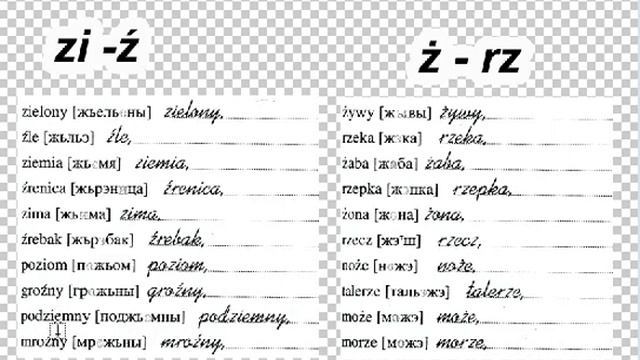 zi -ź
zielony [жьельоны] zielony,
źle [жьльэ] źle,
ziemia [жьэмя] ziemia,
źrenica [жьрэница] źrenica,
zima [жьима] zima,
źrebak [жьрэбак] źrebak,
poziom [пожьом] poziom,
groźny [грожьны] groźny,
podziemny [поджьэмны] podziemny,
mroźny [мрожьны] mroźny,
ż - rz
żywy [жывы] żywy,
rzeka [жэка] rzeka,
żaba [жаба] żaba,
rzepka [жэпка] rzepka,
żona [жона] żona,
rzecz [жэтш] rzecz,
noże [ножэ] noże,
talerze [тальэжэ] talerze,
może [можэ] może,
morze [можэ] morze,